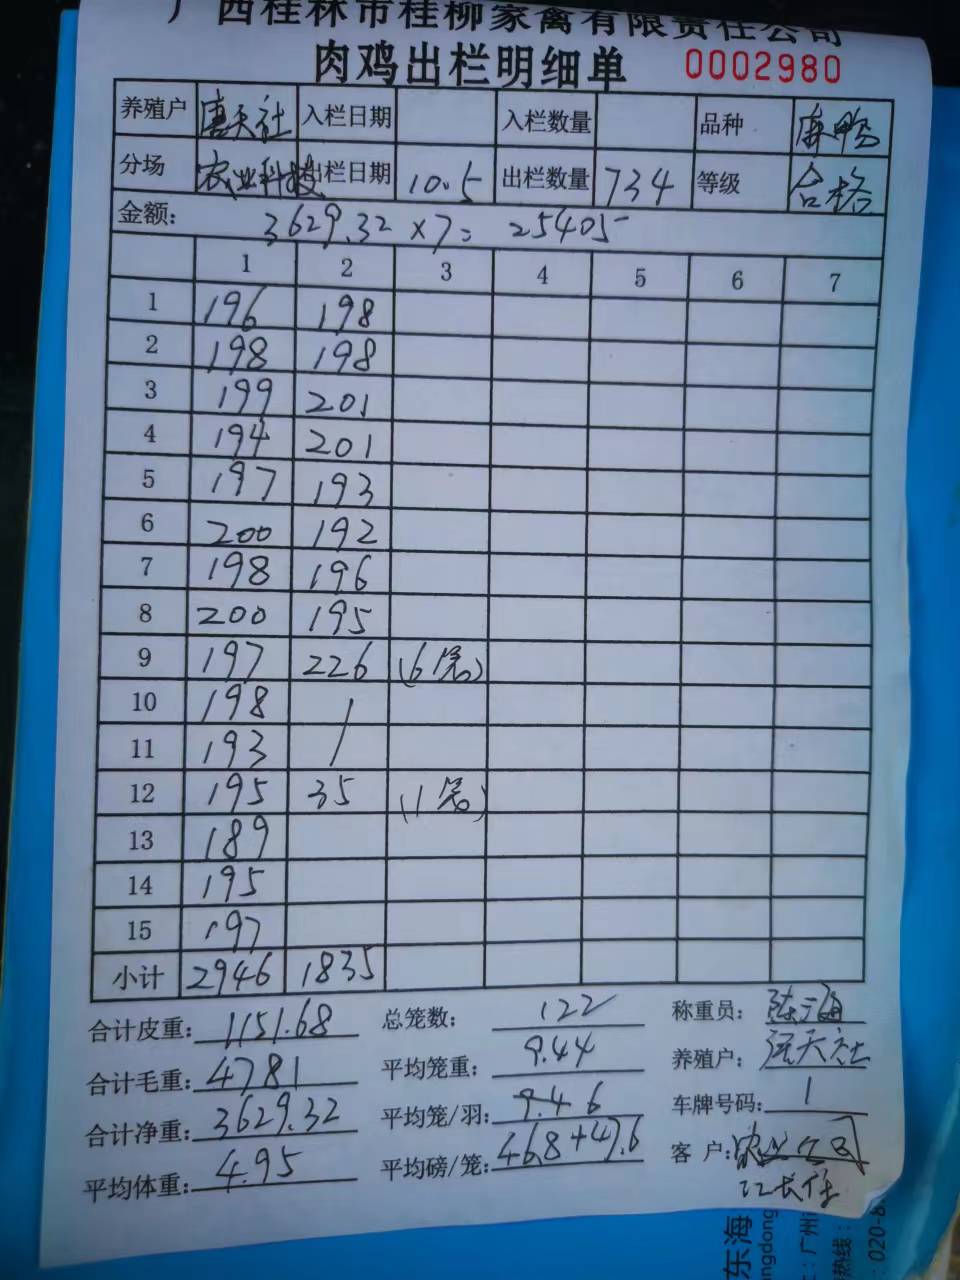 广西桂林市桂柳家禽有限责任公司
肉鸡出栏明细单 0002980
养殖户 唐天社 入栏日期 入栏数量 品种 麻鸭
分场 农业科技 出栏日期 10.5 出栏数量 734 等级 合格
金额: 3629.32 ×7= 25405
1 2 3 4 5 6 7
1 196 198
2 198 198
3 199 201
4 194 201
5 197 193
6 200 192
7 198 196
8 200 195
9 197 226 (6笼)
10 198 /
11 193 /
12 195 35 (1笼)
13 189
14 195
15 197
小计 2946 1835
合计皮重: 1151.68 总笼数: 122 称重员:
合计毛重: 4781 平均笼重: 9.44 养殖户: 天社
合计净重: 3629.32 平均笼/羽: 9.46 车牌号码: 1
平均体重: 4.95 平均磅/笼: 46.8+47.6 客户:
东海
ngdong
广州
热线:
020-8